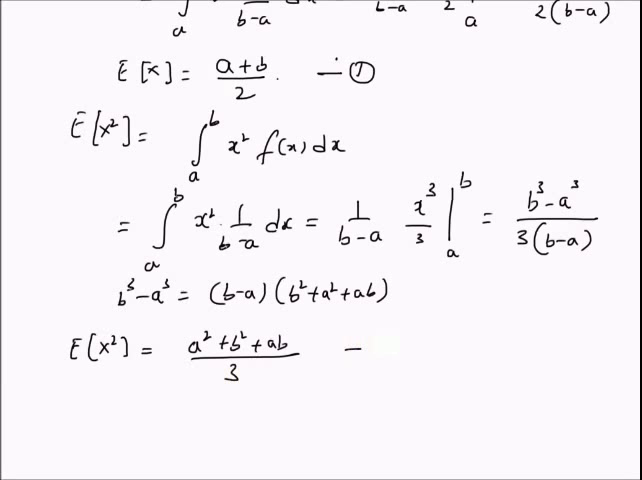 ∫ₐ b-a dx b-a 2 a 2(b-a)
E[X] = (a+b)/2. — ①
E[X²] = ∫ₐᵇ x² f(x) dx
= ∫ₐᵇ x² · 1/(b-a) dx = 1/(b-a) x³/3 |ₐᵇ = (b³-a³)/(3(b-a))
b³-a³ = (b-a)(b²+a²+ab)
E[X²] = (a²+b²+ab)/3 —